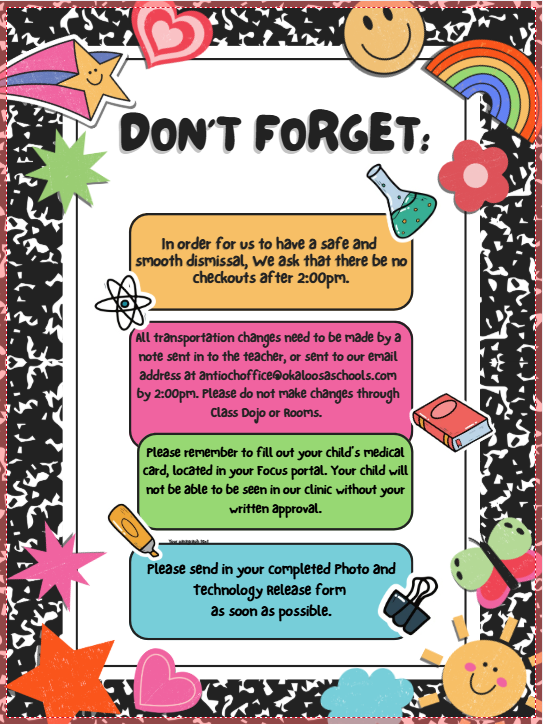 DON'T FORGET:
In order for us to have a safe and
smooth dismissal, We ask that there be no
checkouts after 2:00pm.
All transportation changes need to be made by a
note sent in to the teacher, or sent to our email
address at antiochoffice@okaloosaschools.com
by 2:00pm. Please do not make changes through
Class Dojo or Rooms.
Please remember to fill out your child's medical
card, located in your Focus portal. Your child will
not be able to be seen in our clinic without your
written approval.
Your paragraph text
Please send in your completed Photo and
Technology Release form
as soon as possible.